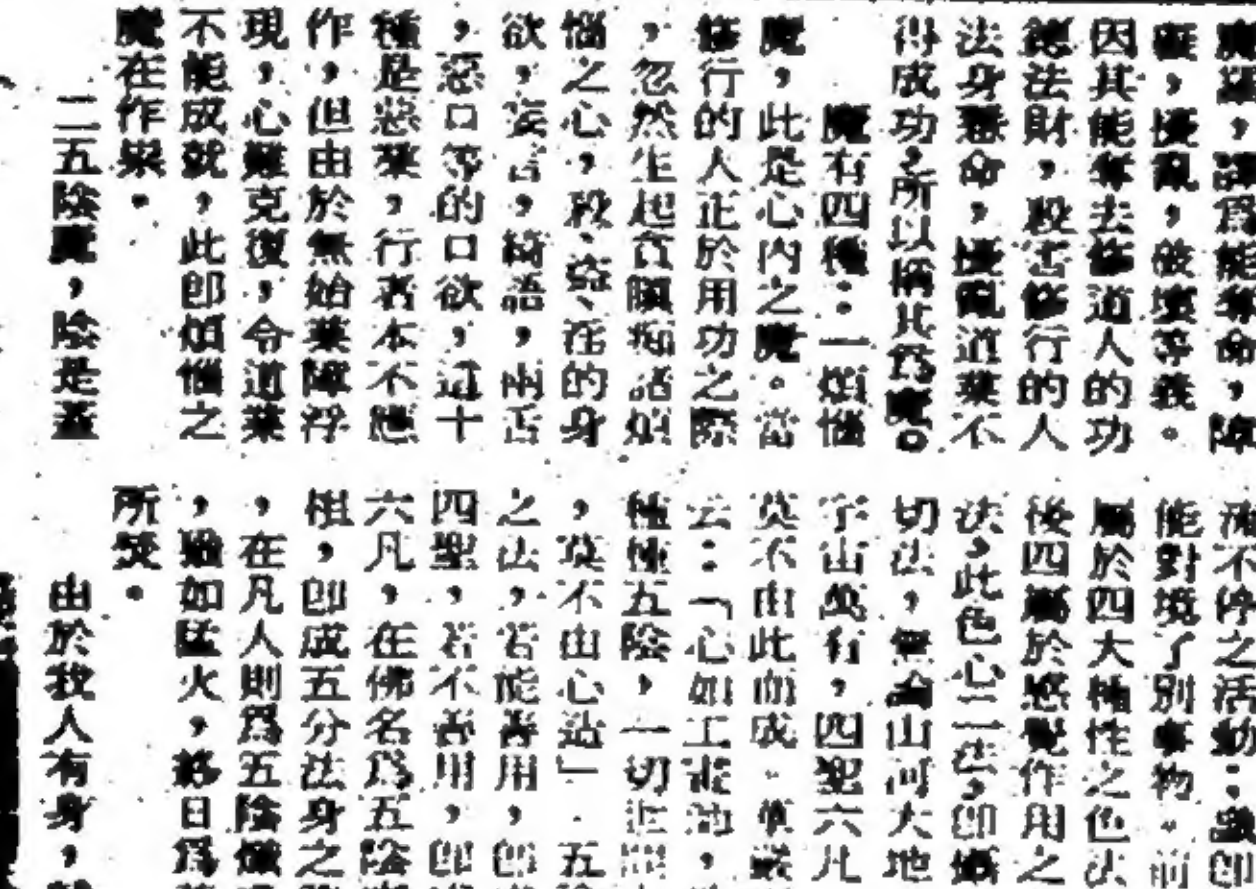 魔羅，譯爲能奪命，障
礙，擾亂，破壞等義。
因其能奪去修道人的功
德法財，殺害修行的人
法身慧命，擾亂道業不
得成功，所以稱其爲魔。
魔有四種：一煩惱
魔，此是心內之魔。當
修行的人正於用功之際
，忽然生起貪瞋痴諸煩
惱之心，殺、盜、淫的身
欲，妄言，綺語，兩舌
，惡口等的口欲，這十
種是惡業，行者本不應
作，但由於無始業障浮
現，心難克復，令道業
不能成就，此即煩惱之
魔在作祟。
二五陰魔，陰是蓋
流不停之活動；識即
能對境了別事物。前
屬於四大種性之色法
後四屬於感覺作用之
法，此色心二法，即攝
切法，無論山河大地
宇宙萬有，四聖六凡
莫不由此而成。華嚴
云：「心如工畫師，
種種五陰，一切世間
，莫不由心造」．五
之法，若能善用，即
四聖，若不善用，即
六凡，在佛名爲五陰
相，即成五分法身之
，在凡人則爲五陰熾
，雖如猛火，終日爲
所燹。
由於我人有身，